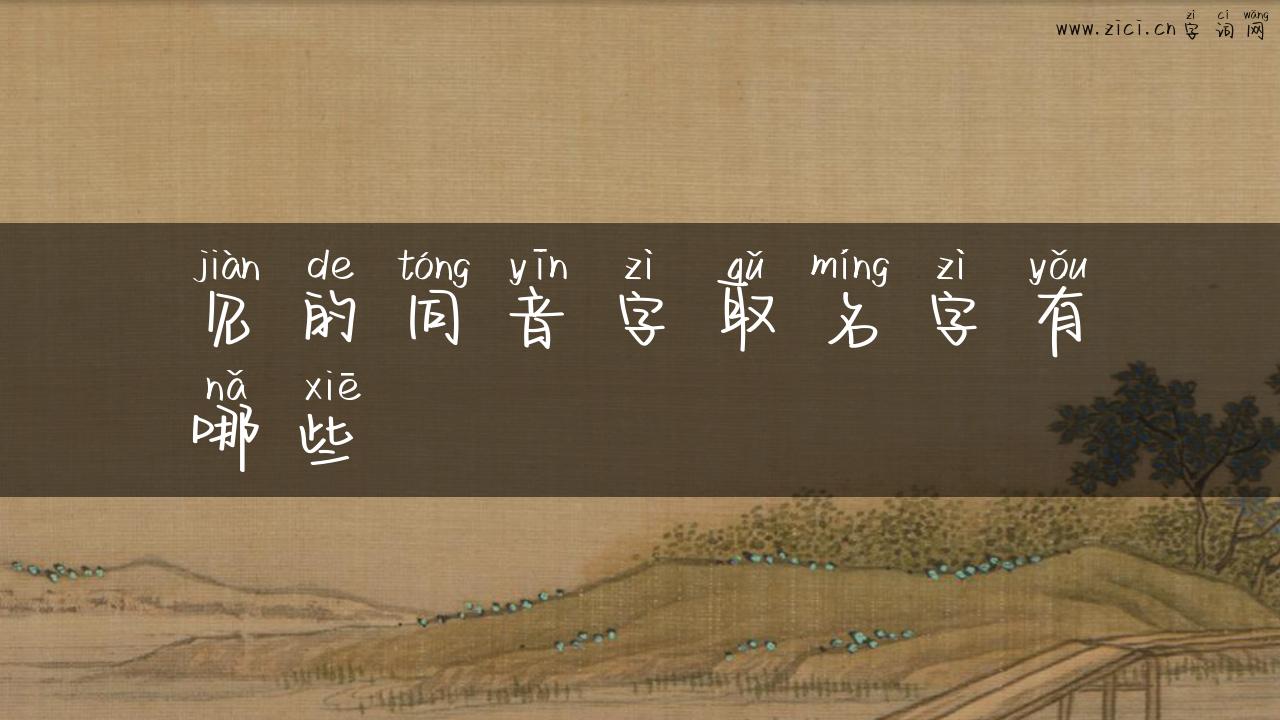 zì cí wǎng
www.zici.cn 字词网
jiàn de tóng yīn zì qǔ míng zì yǒu
见的同音字取名字有
nǎ xiē
哪些